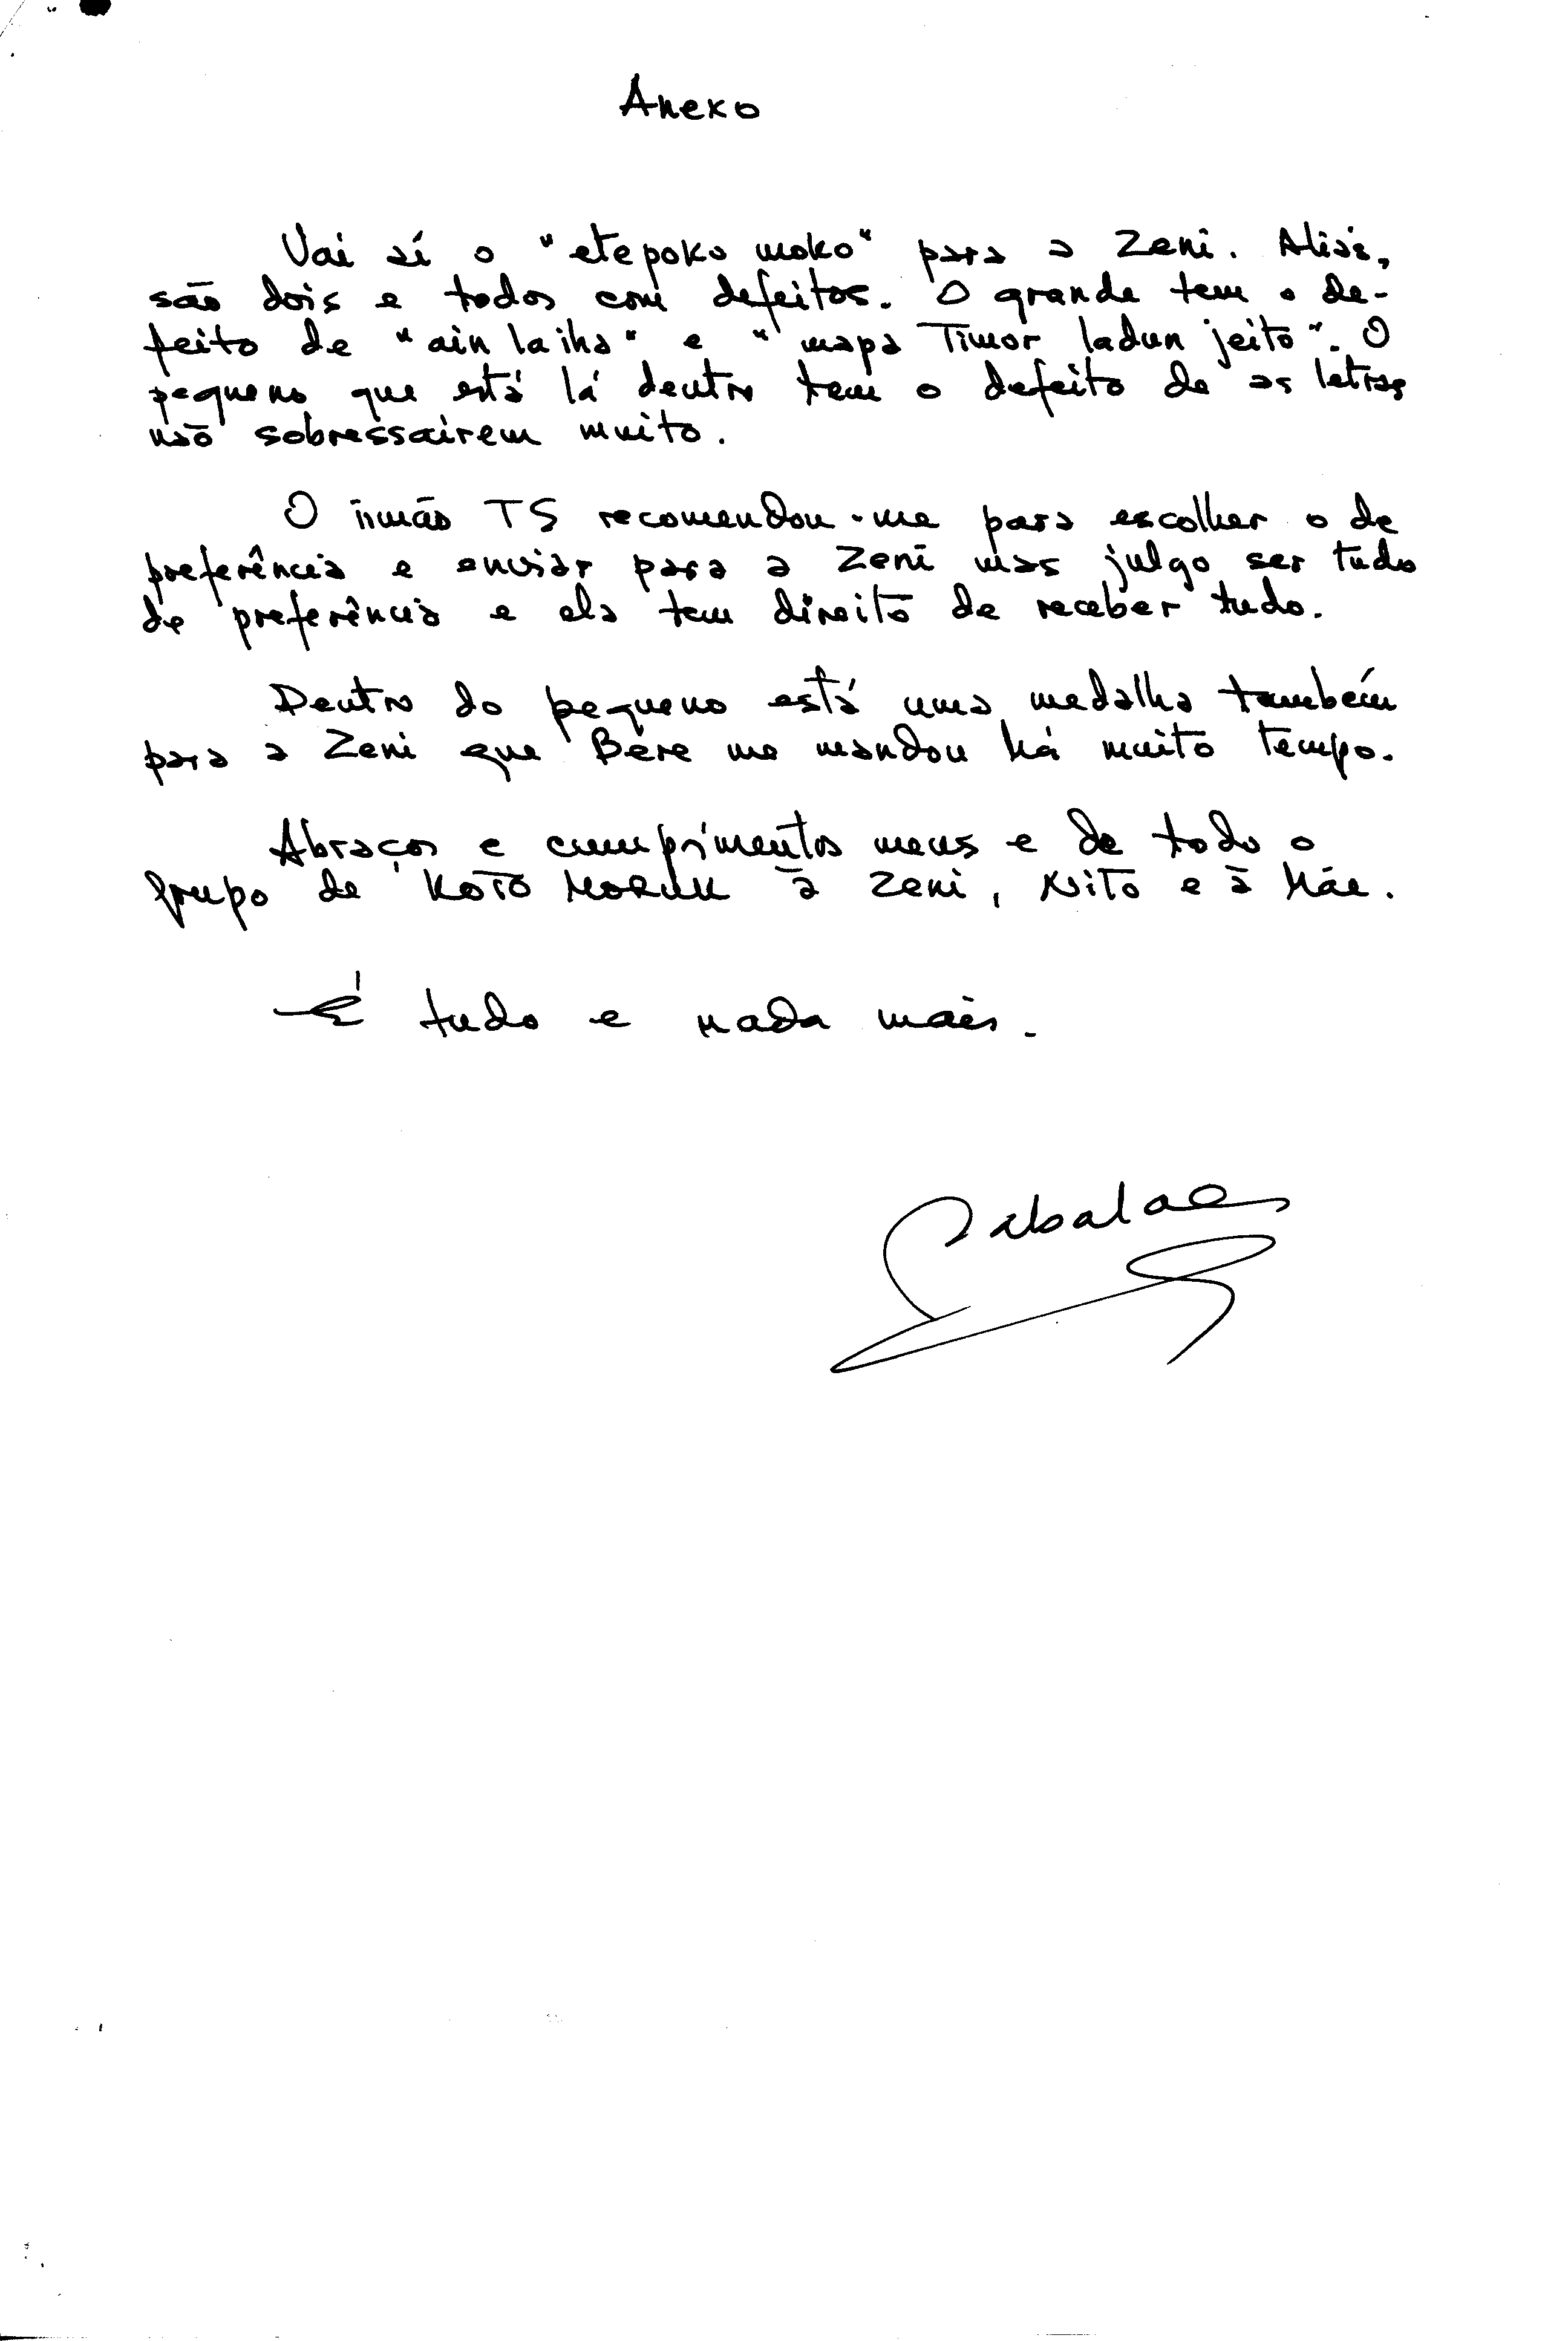 Anexo
Vai aí o "etepoko moko" para a Zeni. Aliás,
são dois e todos com defeitos. O grande tem o de-
feito de "ain laiha" e "mapa Timor ladun jeito". O
pequeno que está lá dentro tem o defeito de as letras
não sobressairem muito.
O irmão TS recomendou-me para escolher o de
preferência e enviar para a Zeni mas julgo ser tudo
de preferência e ela tem direito de receber tudo.
Dentro do pequeno está uma medalha também
para a Zeni que Bere me mandou há muito tempo.
Abraços e cumprimentos meus e de todo o
grupo de KOTO MORUK à Zeni, Nito e à Mãe.
É tudo e nada mais.